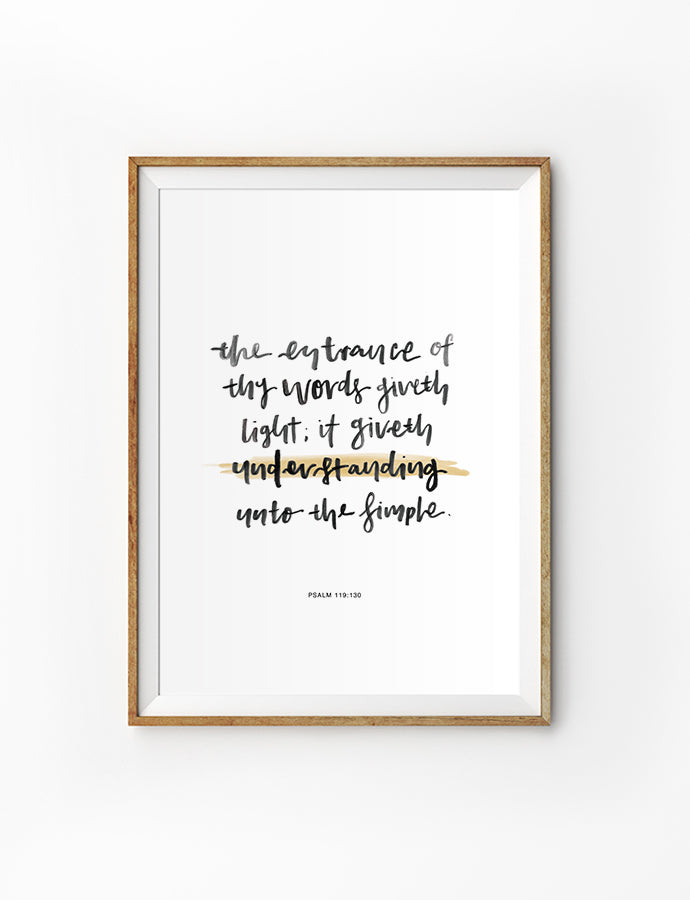 the entrance of
thy words giveth
light; it giveth
understanding
unto the simple.
PSALM 119:130